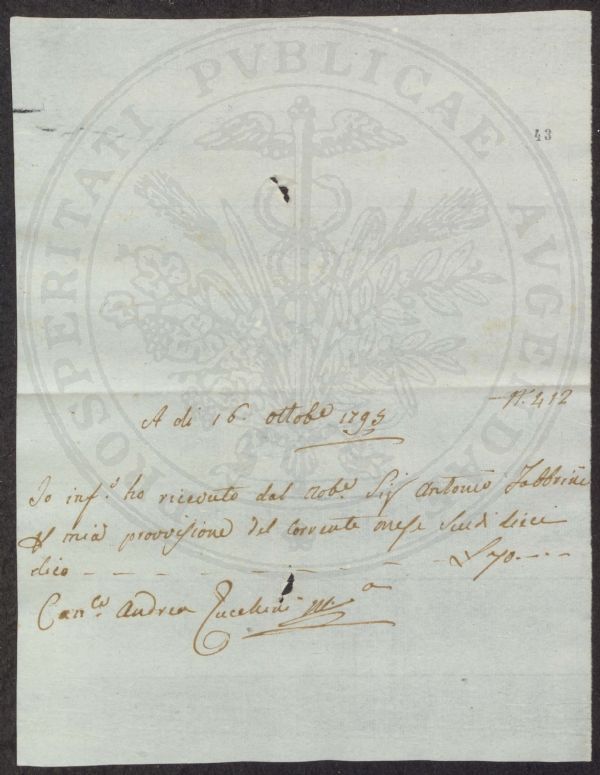 PROSPERITATI PVBLICAE AVGENDAE
43
N. 412
A di 16. ottob.e 1795
Io inf.o ho riceuto dal Nob.e Sig.r Antonio Fabbrini
mia provvisione del corrente mese Scudi dieci
dico — — — — — — — £ 70. — — —
Can.co Andrea Zucchini